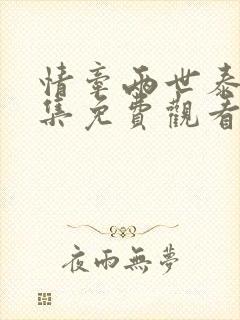 情牽兩世泰
集免費觀看
夜雨無夢